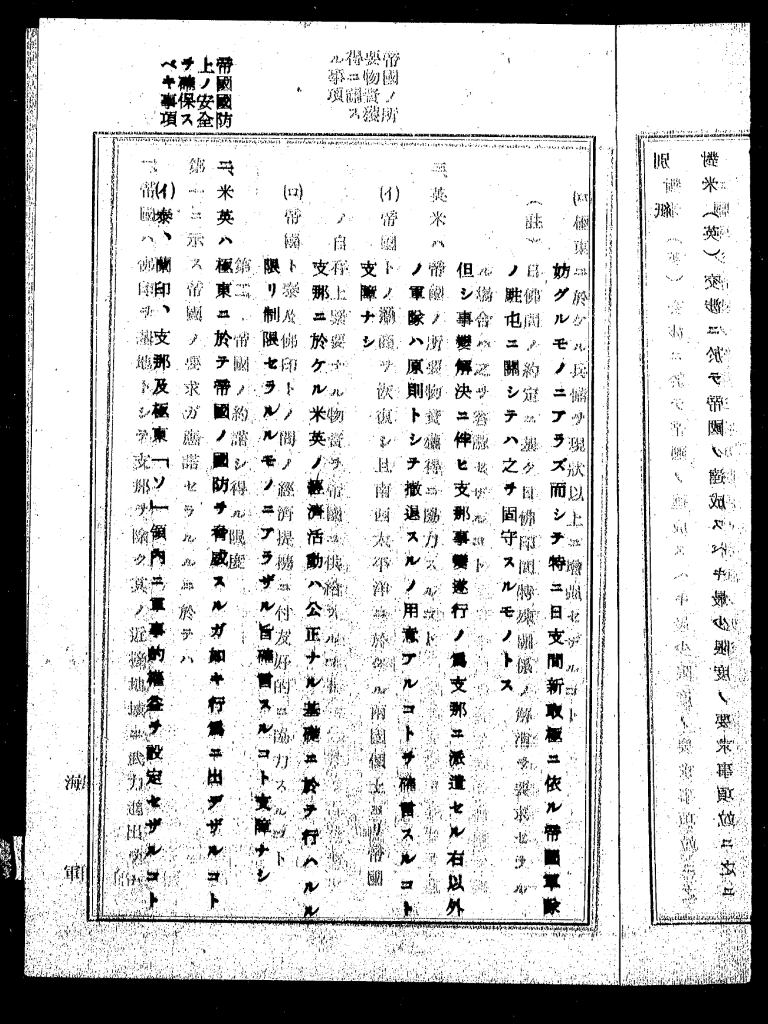 別紙
對米(英)交渉ニ於テ帝國ノ達成スベキ最少限度ノ要求事項竝ニ之ニ
妨グルモノニアラズ而シテ特ニ日支間新取極ニ依ル帝國軍隊
ノ駐屯ニ關シテハ之ヲ固守スルモノトス
但シ事變解決ニ伴ヒ支那事變遂行ノ爲支那ニ派遣セル右以外
ノ軍隊ハ原則トシテ撤退スルノ用意アルコトヲ確言スルコト
支障ナシ
支那ニ於ケル米英ノ經濟活動ハ公正ナル基礎ニ於テ行ハルル
限リ制限セラルルモノニアラザル旨確言スルコト支障ナシ
帝國國防
上ノ安全
ヲ確保ス
ベキ事項
二、米英ハ極東ニ於テ帝國ノ國防ヲ脅威スルガ如キ行爲ニ出デザルコト
(イ)泰、蘭印、支那及極東「ソ」領內ニ軍事的權益ヲ設定セザルコト
(ロ)極東ニ於ケル兵備ヲ現狀以上ニ增强セザルコト
(註)日佛間ノ約定ニ基ク日佛印間特殊關係ノ解消ヲ要求セラル
ル場合ハ之ヲ容認セザルコト
帝國ノ所
要物資獲
得ニ關ス
ル事項
三、英米ハ帝國ノ所要物資獲得ニ協力スルコト
(イ)帝國トノ通商ヲ恢復シ且南西太平洋ニ於ケル兩國領土ヨリ帝國
ノ自存上緊要ナル物資ヲ帝國ニ供給
(ロ)帝國ト泰及佛印トノ間ノ經濟提携ニ付友好的ニ協力スルコト
第二、帝國ノ約諾シ得ル限度
第一ニ示ス帝國ノ要求ガ應諾セラルルニ於テハ
一、帝國ハ佛印ヲ基地トシテ支那ヲ除ク其ノ近接地域ニ武力進出
海軍